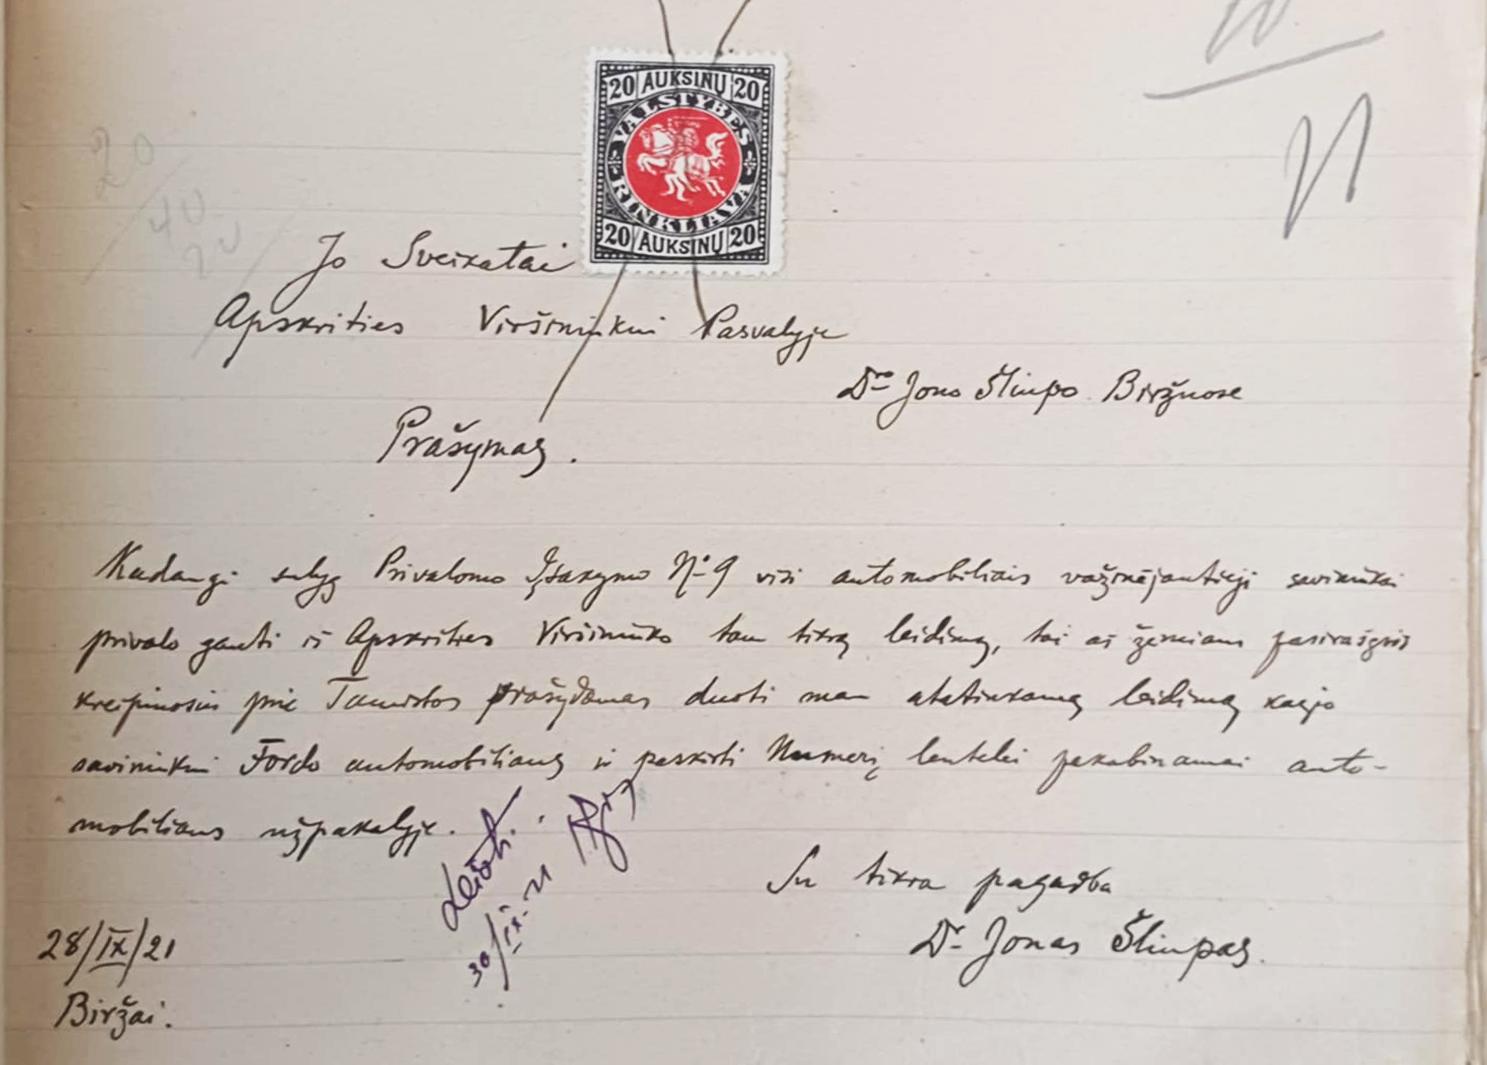 20 AUKSINŲ 20
VALSTYBĖS
RINKLIAVA
20 AUKSINŲ 20
20
40
20
Jo Sveikatai
Apskrities Viršininkui Pasvalyje
Dro Jono Šliupo Biržuose
Prašymas.
Kadangi sulyg Privalomo Įsakymo No 9 visi automobiliais važinėjantieji savininkai
privalo gauti iš Apskrities Viršininko tam tikrą leidimą, tai aš žemiaus pasirašęsis
kreipiuosiu prie Tamistos prašydamas duoti man atatinkamą leidimą kaipo
savininkui Fordo automobiliaus ir paskirti Numerį lentelei pakabinamai auto-
mobiliaus užpakalyje.
Leisti.
30/IX-21
Su tikra pagarba
Dr Jonas Šliupas.
28/IX/21
Biržai.